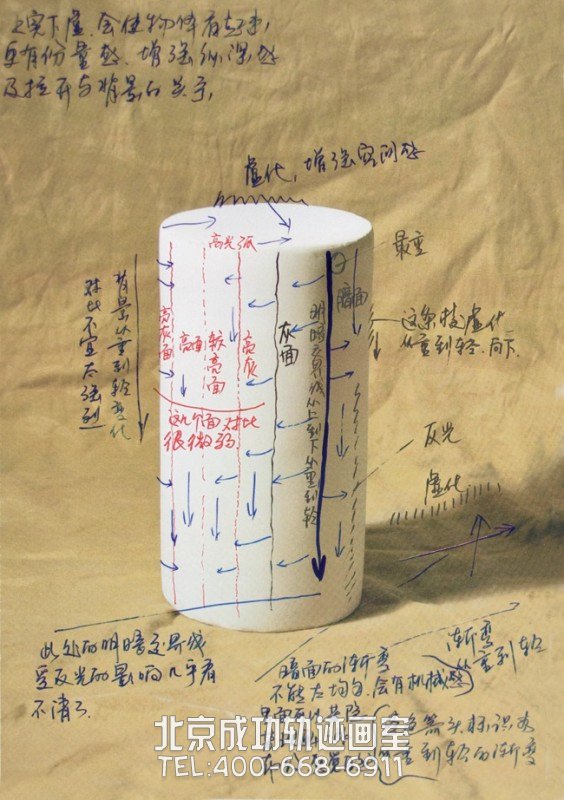 上实下虚,会使物体有起来,
更有份量感、增强纵深感
及拉开与背景的关系,
虚化,增强空间感
高光弧
最重
暗面
这条线虚化
从重到轻.向下
背景从重到轻变化
对比不宜太强烈
高灰面
高面
较亮面
亮灰
灰面
明暗交界线从上到下从重到轻
这几个面对比
很微弱
反光
虚化
此处的明暗交界线
受反光的影响几乎看
不清了
渐变
从重到轻
暗面的渐变
不能太均匀.会有机械感
箭头标识为
重到轻的渐变
北京成功轨迹画室
TEL:400-668-6911